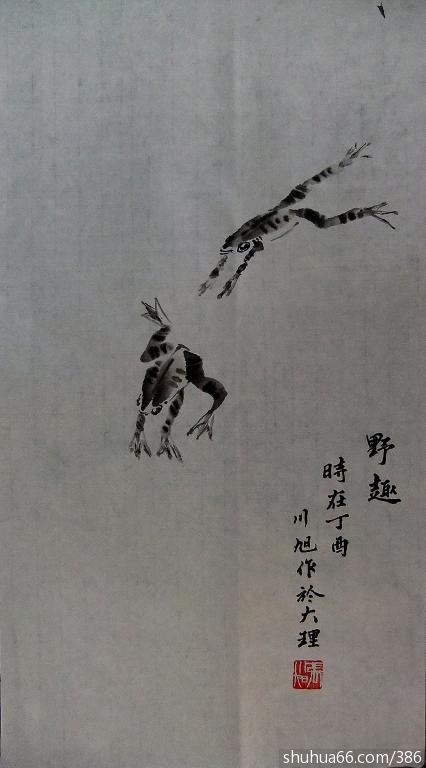 野趣
時在丁酉
川旭作於大理
shuhua66.com/386